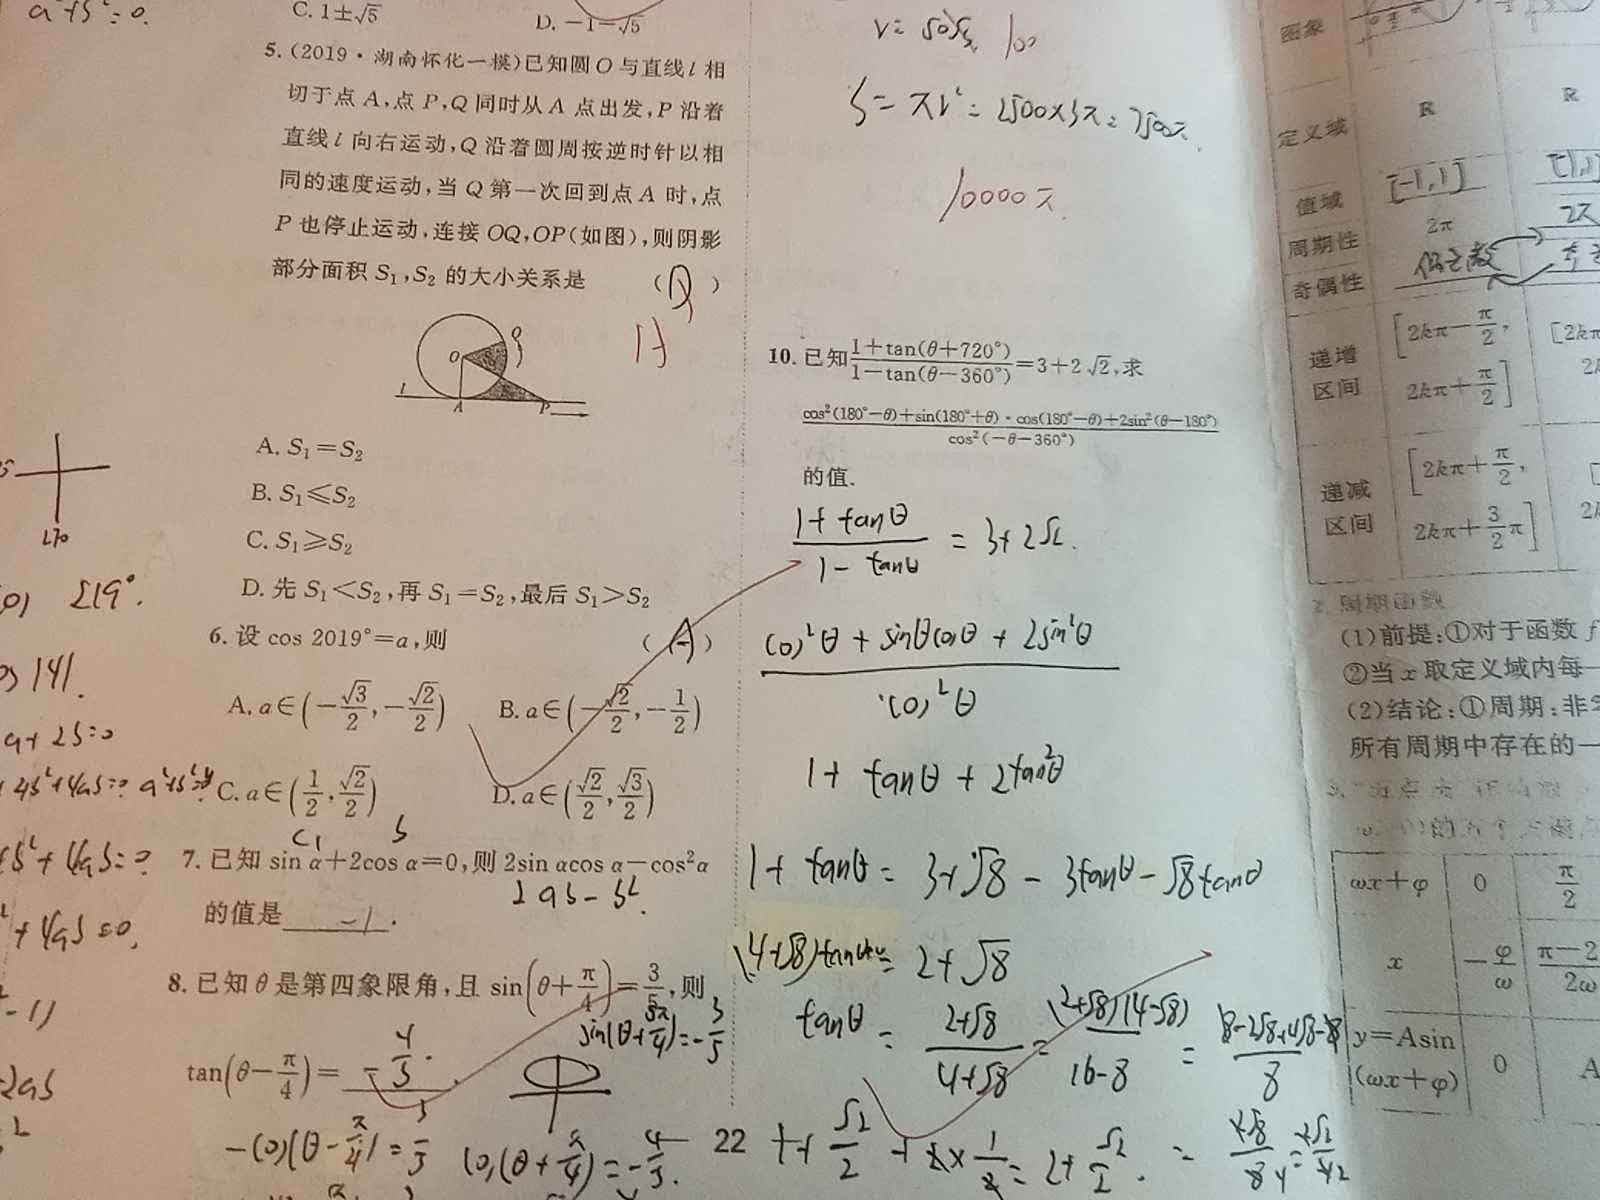 a²+b²=0.
C. 1±√5
D. −1−√5
5. (2019·湖南怀化一模)已知圆O与直线l相
切于点A,点P,Q同时从A点出发,P沿着
直线l向右运动,Q沿着圆周按逆时针以相
同的速度运动,当Q第一次回到点A时,点
P也停止运动,连接OQ,OP(如图),则阴影
部分面积S₁,S₂的大小关系是 ( )
O
Q
l
A
P
A. S₁=S₂
B. S₁≤S₂
C. S₁≥S₂
D. 先S₁<S₂,再S₁=S₂,最后S₁>S₂
6. 设cos 2019°=a,则 (A)
A. a∈(−√3/2,−√2/2)
B. a∈(−√2/2,−1/2)
C. a∈(1/2,√2/2)
D. a∈(√2/2,√3/2)
7. 已知sin α+2cos α=0,则2sin αcos α−cos²α
2ab−b².
的值是 −1 .
8. 已知θ是第四象限角,且sin(θ+π/4)=3/5,则
sin(θ+5π/4)=−3/5
tan(θ−π/4)= −4/3 .
−cos(θ−π/4)=3/5
cos(θ+π/4)=−4/5.
270
219°.
141.
a+2b=0
+4ab=0.
22
100
S=πr²=2500×3π=7500π.
10000π.
10. 已知(1+tan(θ+720°))/(1−tan(θ−360°))=3+2√2,求
(cos²(180°−θ)+sin(180°+θ)·cos(180°−θ)+2sin²(θ−180°))/(cos²(−θ−360°))
的值.
(1+tanθ)/(1−tanθ)=3+2√2.
(cos²θ+sinθcosθ+2sin²θ)/(cos²θ)
1+tanθ+2tan²θ
1+tanθ=3+√8−3tanθ−√8tanθ
(4+√8)tanθ=2+√8
tanθ=(2+√8)/(4+√8)=(2+√8)(4−√8)/(16−8)=(8−2√8+4√8−8)/8
1+√2/2+2×1/2=2+√2/2.
图象
定义域 R R
值域 [-1,1] [-1,1]
周期性 2π 2π
奇偶性
递增
区间
[2kπ−π/2,
2kπ+π/2]
递减
区间
[2kπ+π/2,
2kπ+3/2π]
2. 周期函数
(1)前提:①对于函数f
②当x取定义域内每一
(2)结论:①周期:非零
所有周期中存在的一
ωx+φ 0 π/2
x −φ/ω
y=Asin
(ωx+φ) 0 A